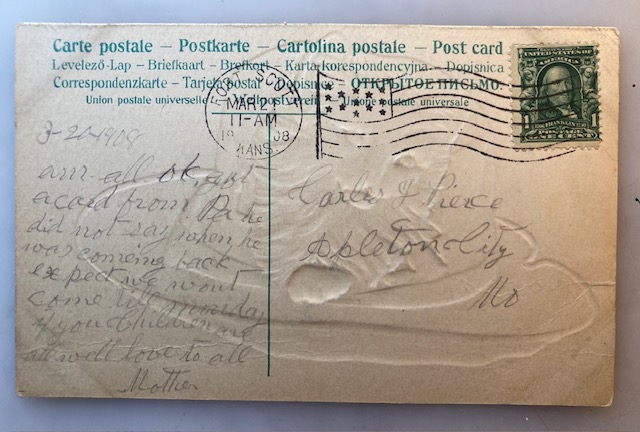 Carte postale – Postkarte – Cartolina postale – Post card
Levelező-Lap – Briefkaart – Brefkort – Karta korespondencyjna – Dopisnica
Correspondenzkarte – Tarjeta postal – Dopisnice – ОТКРЫТОЕ ПИСЬМО.
Union postale universelle – Weltpostverein – Unione postale universale
UNITED STATES OF AMERICA
FRANKLIN
1 1
FORT SCOTT
MAR 21
11-AM
1908
KANS.
3-20-1908
am all ok, got
a card from Pa he
did not say when he
was comeing back
expect we wont
come till monday
if you children are
all well love to all
Mother
Carles J Pierce
Apleton City
Mo